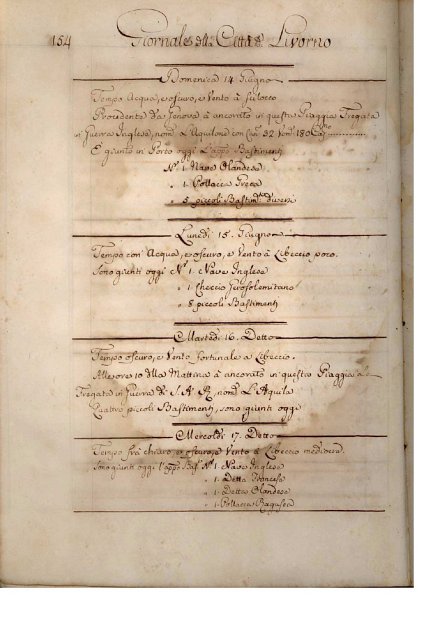 154 Giornale della Città di Livorno
Domenica 14 Giugno
Tempo Acqua, e oscuro, e Vento à scilocco
Procidente da Genova à ancorato in questa Piaggia Fregata
in Guerra Inglese, nom. L'Aquilone con Can. 32 Uom. 180 Cap.
E giunto in Porto oggi L'app. Bastimenti
Nº 1 Nave Olandese
" 1 Pollacca Greca
" 5 piccoli Bastim.ti diversi
Lunedì 15. Giugno
Tempo con Acqua, e oscuro, e Vento à Libeccio poco.
Sono giunti oggi Nº 1 Nave Inglese
" 1 Checcio Gerosolemitano
" 8 piccoli Bastimenti
Martedì 16. Detto
Tempo oscuro, e Vento fortunale a Libeccio.
Alle ore 10 dlla Mattina à ancorato in questa Piaggia al
Fregata in Guerra di S. A. R. nom. L'Aquila
Quattro piccoli Bastimenti, sono giunti oggi
Mercoldì 17. Detto
Tempo frà chiaro, e oscuro, e Vento à Libeccio mediocre.
Sono giunti oggi l'app. Bast. Nº 1 Nave Inglese
" 1. Detta Francese
" 1. Detta Olandese
" 1. Pollacca Ragusea